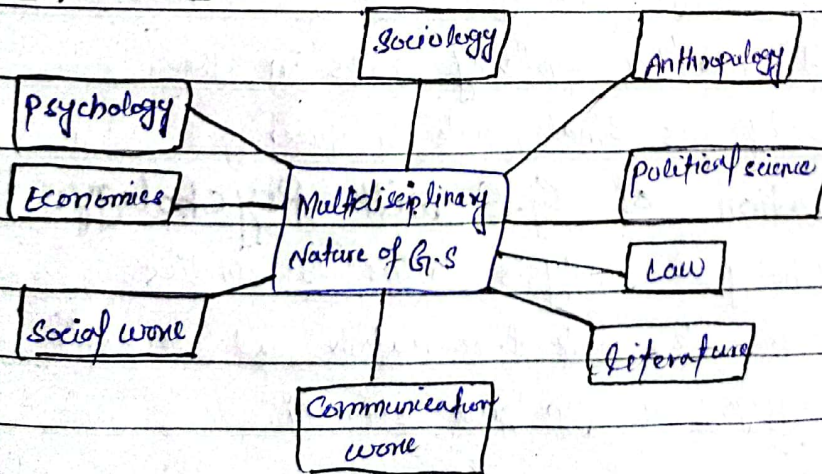 Sociology
Anthropology
Psychology
Political science
Economics
Multidisciplinary
Nature of G.S
Law
Social work
Literature
Communication
work